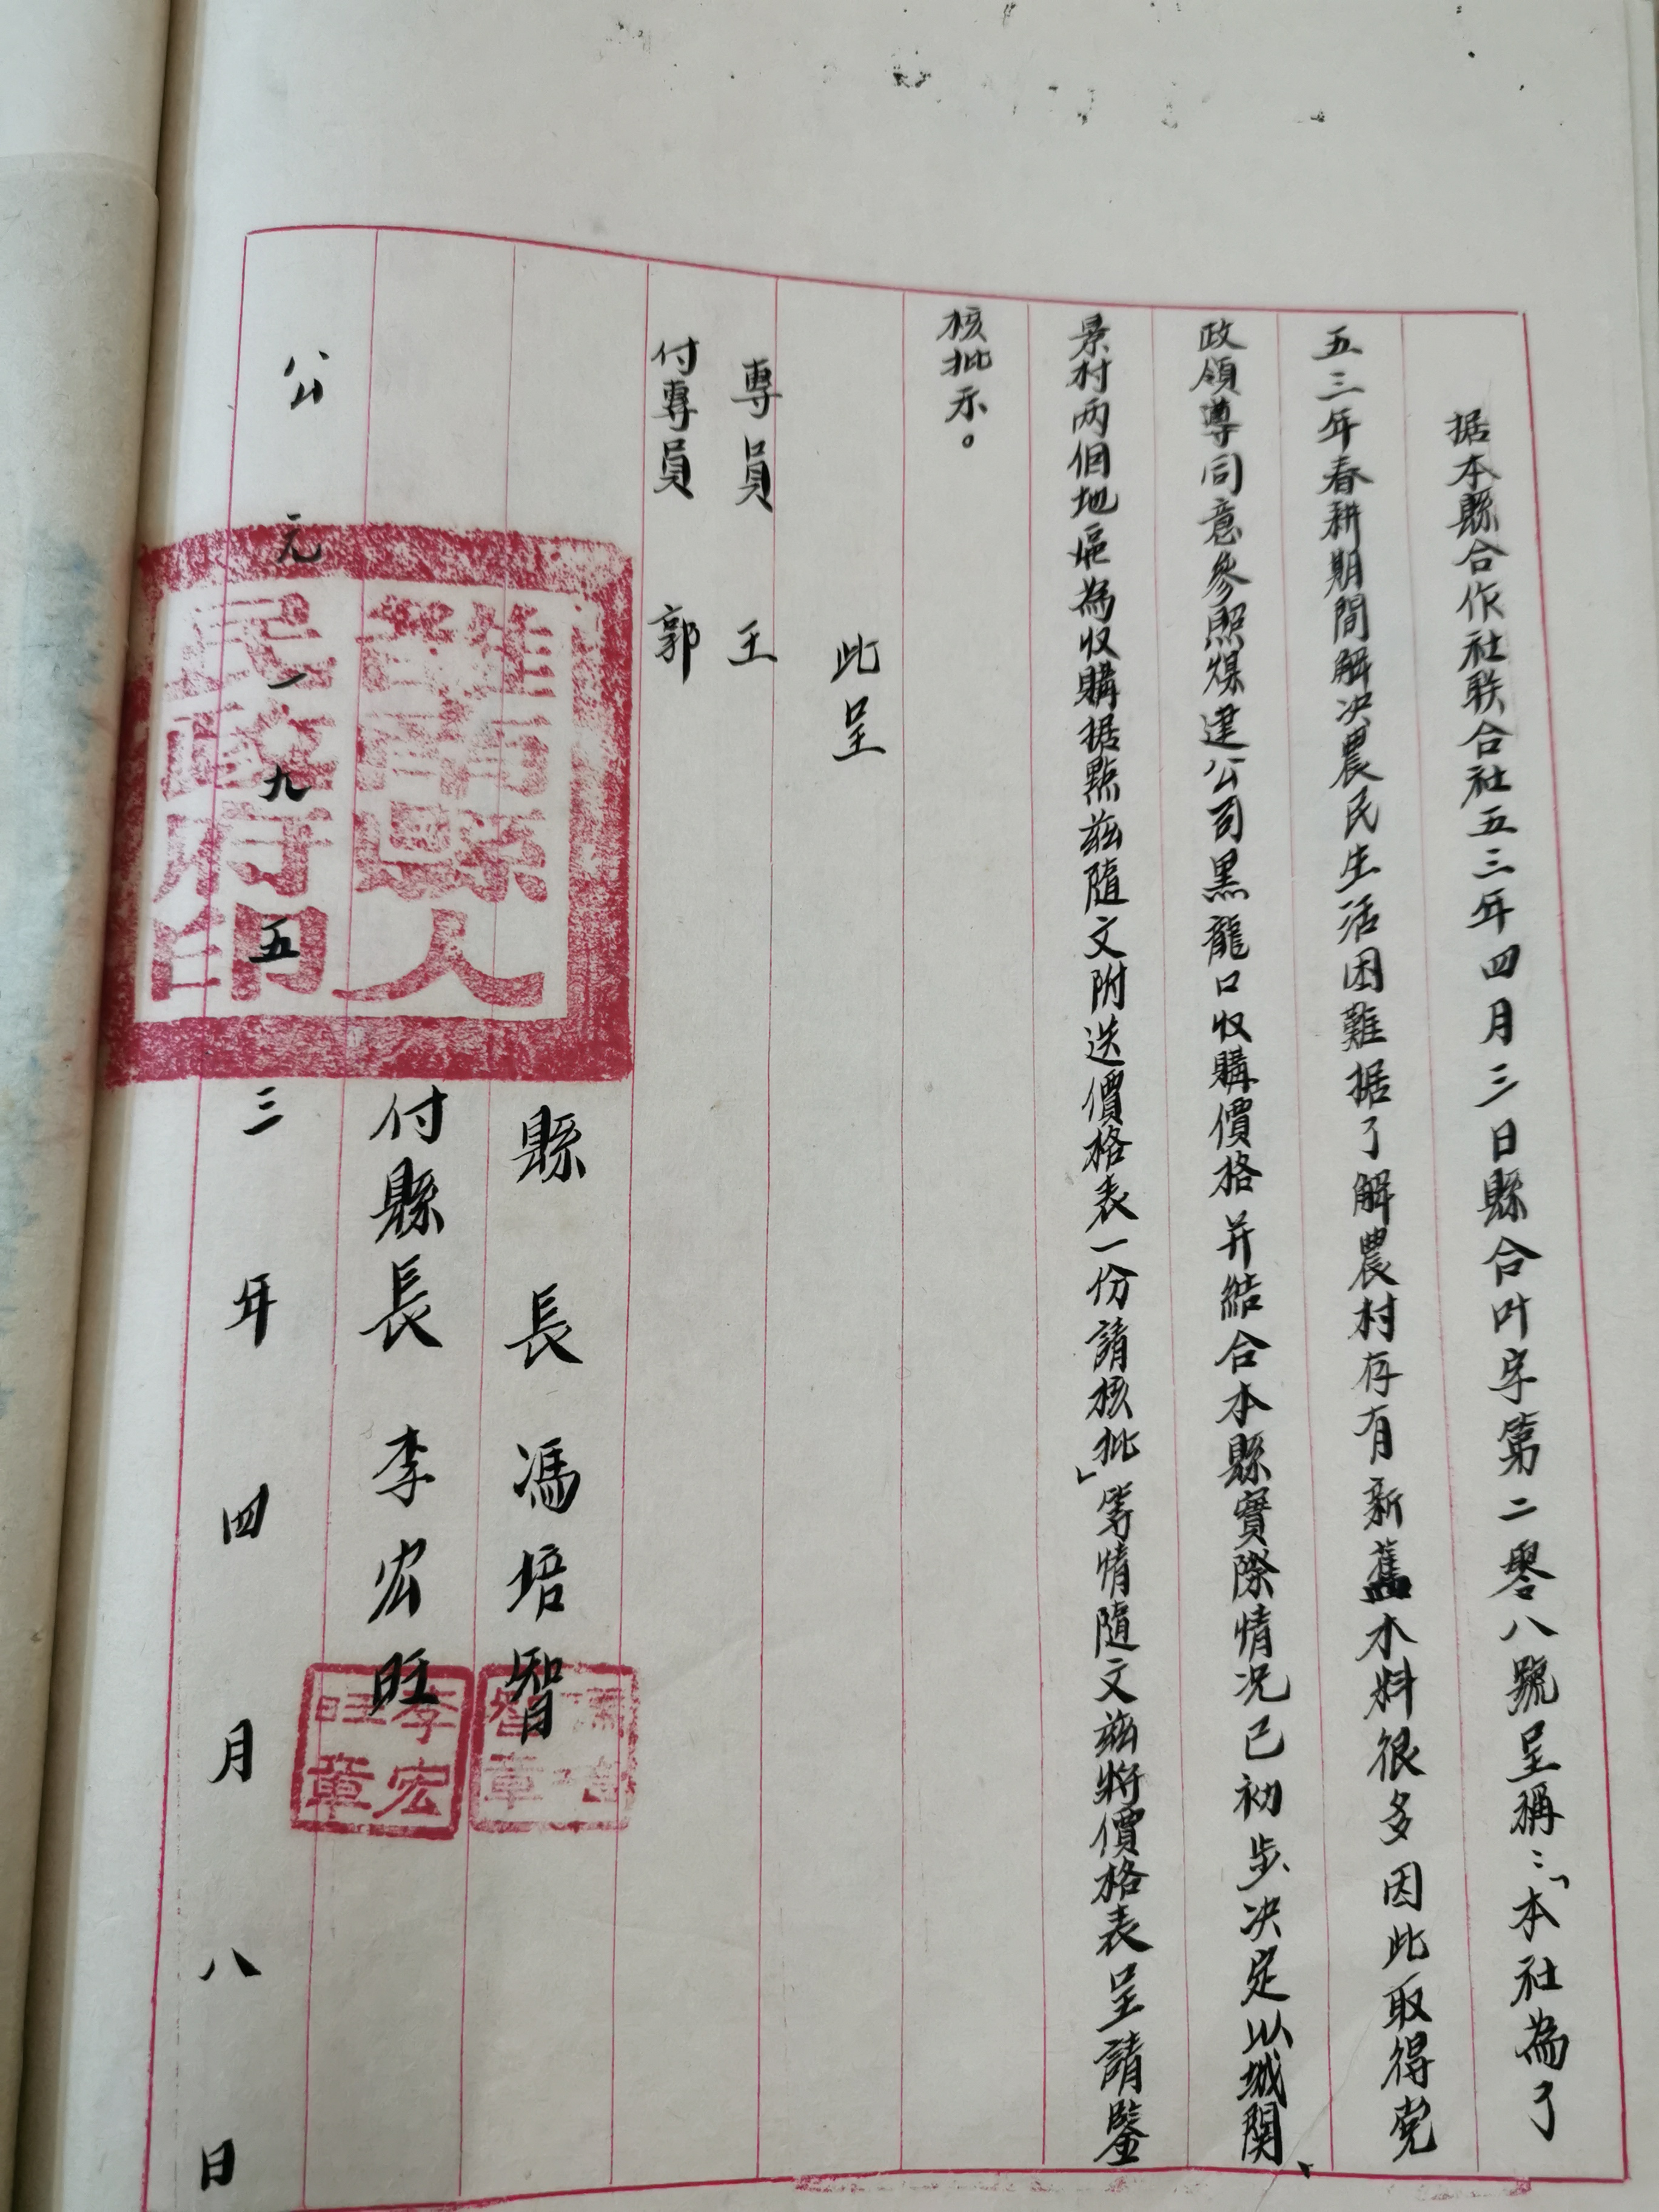 据本縣合作社联合社五三年四月三日縣合叶字第二零八號呈稱：「本社為了
五三年春耕期間解决農民生活困難据了解農村存有新舊木料很多因此取得党
政領導同意參照煤建公司黑龍口收購價格并結合本縣實際情况已初步决定以城関、
景村两個地區為收購据點兹隨文附送價格表一份請核批」等情隨文兹將價格表呈請鑒
核批示。
此呈
專員 王
付專員 郭
縣長 馮培智
付縣長 李宏旺
公元一九五三年四月八日
雒南縣人
民政府印
馮培
智章
李宏
旺章